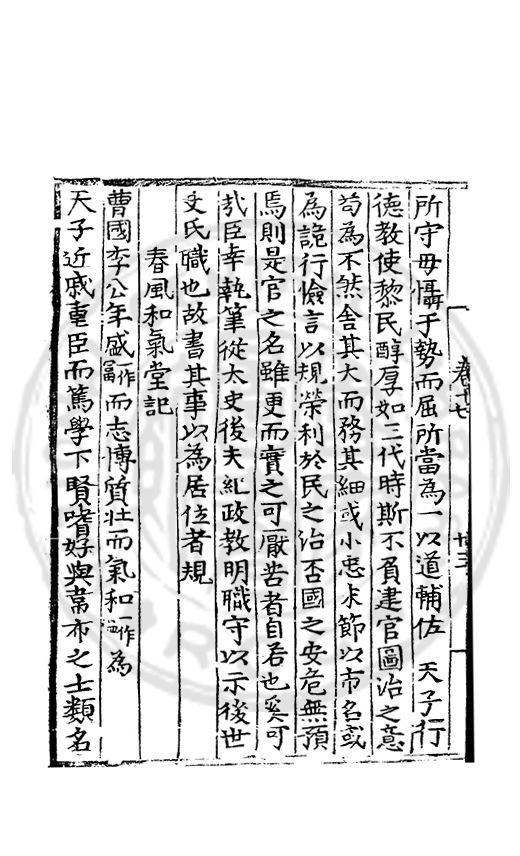 所守毋懾于勢而屈所當為一以道輔佐 天子行
德教使黎民醇厚如三代時斯不負建官圖治之意
茍為不然舍其大而務其細或小忠末節以市名或
為詭行憸言以規榮利於民之治否國之安危無預
焉則是官之名雖更而實之可厭苦者自若也奚可
哉臣幸執筆從太史後夫紀政教明職守以示後世
史氏職也故書其事以為居位者規
春風和氣堂記
曹國李公年盛一作富而志博質壯而氣和一作溫為
天子近戚重臣而篤學下賢嗜好與韋布之士類名
卷十七